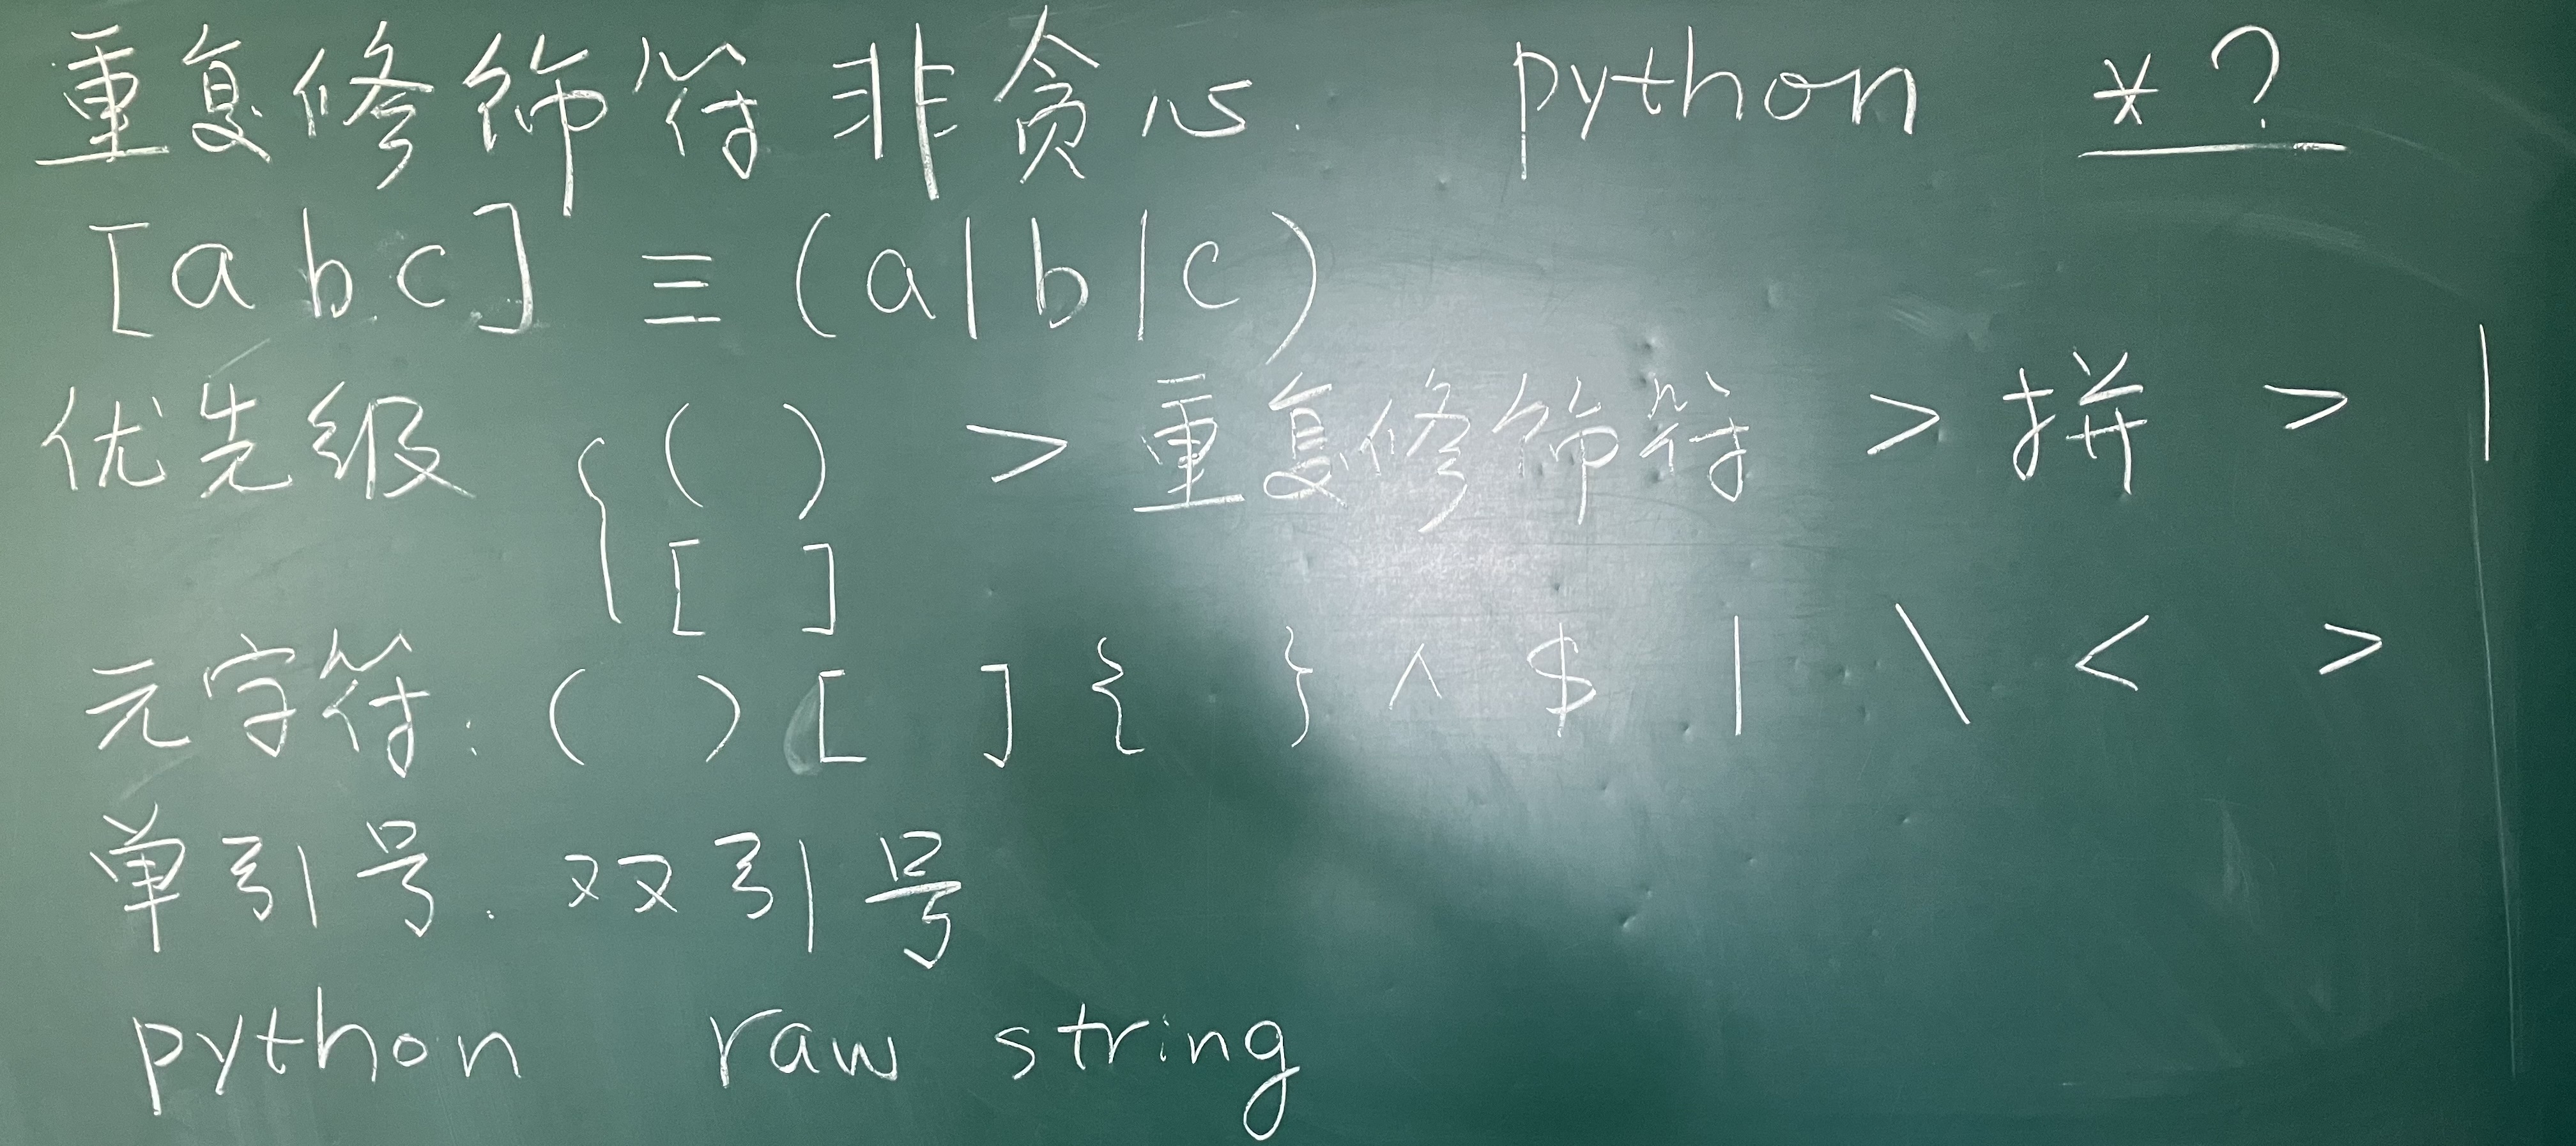 重复修饰符非贪心. python *?
[abc] ≡ (a|b|c)
优先级 { ( ) > 重复修饰符 > 拼 > |
[ ]
元字符: ( ) [ ] { } ^ $ | \ < >
单引号. 双引号
python raw string